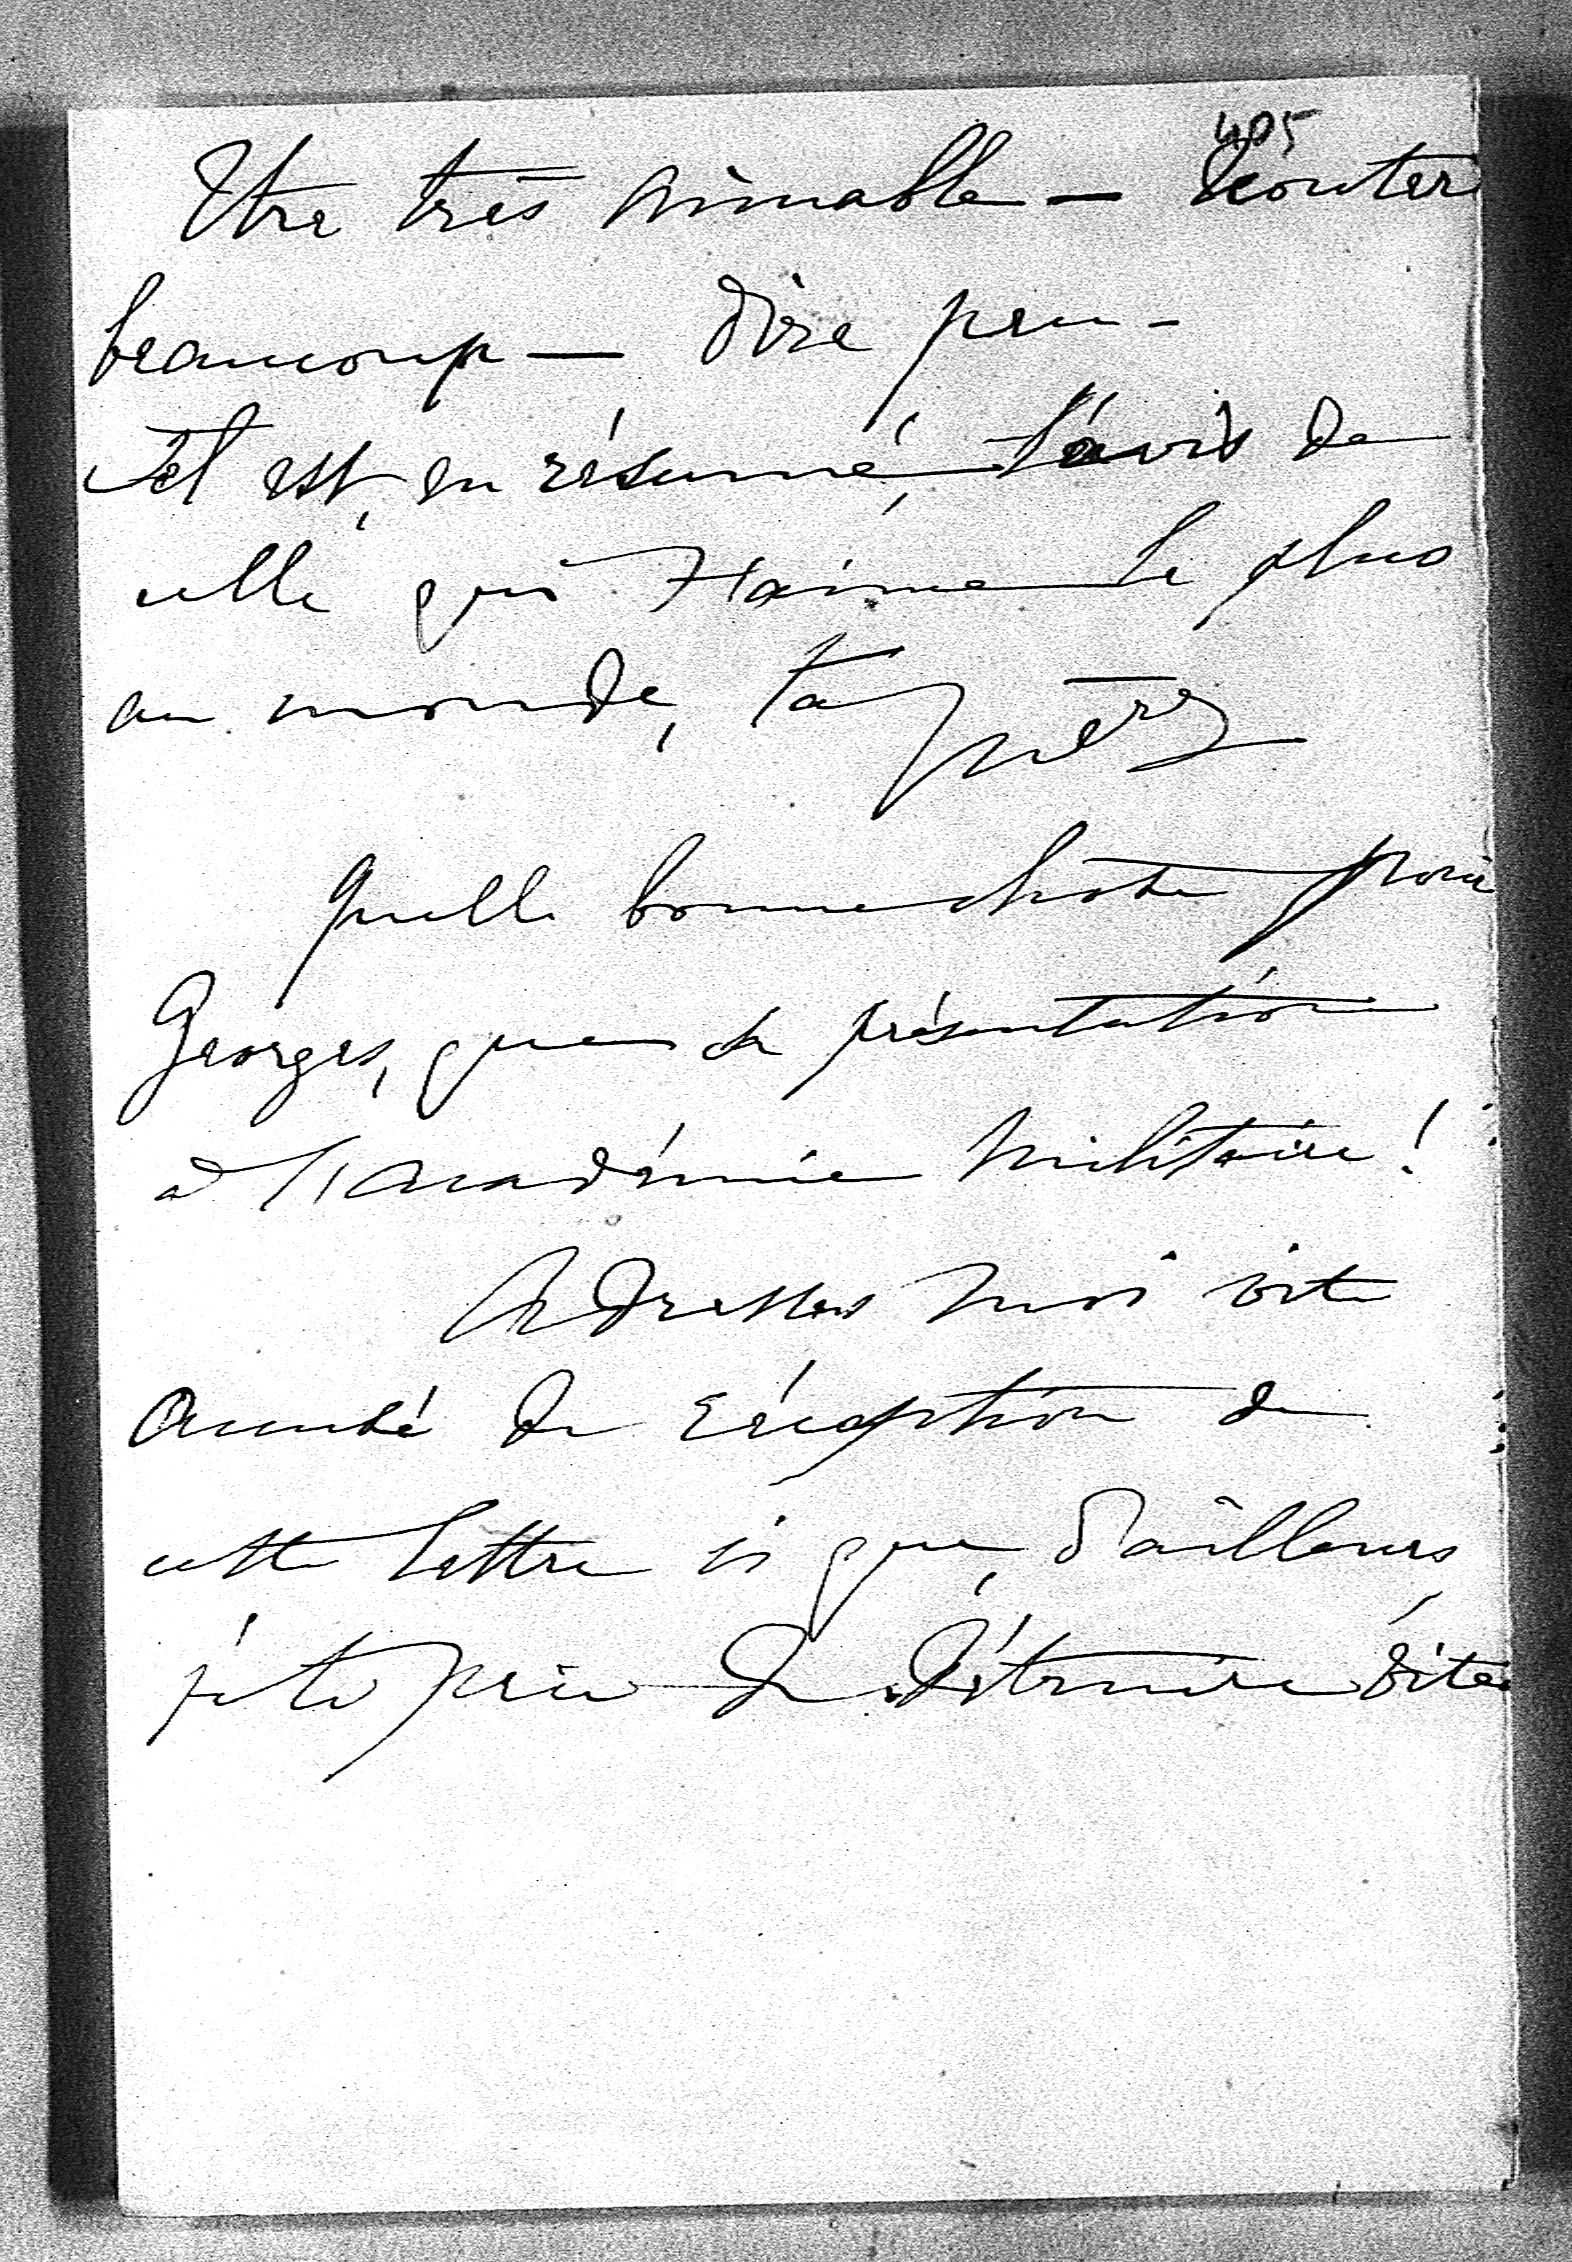 405
Etre très aimable — Ecouter
beaucoup — dire peu -
Tel est, en résumé, l'avis de
celle qui t'aime le plus
au monde, ta mère
Quelle bonne chose pour
Georges, que sa présentation
à l'académie militaire !
Adresses moi vite
accusé de réception de
cette lettre ci que, d'ailleurs,
je te prie de détruire vite